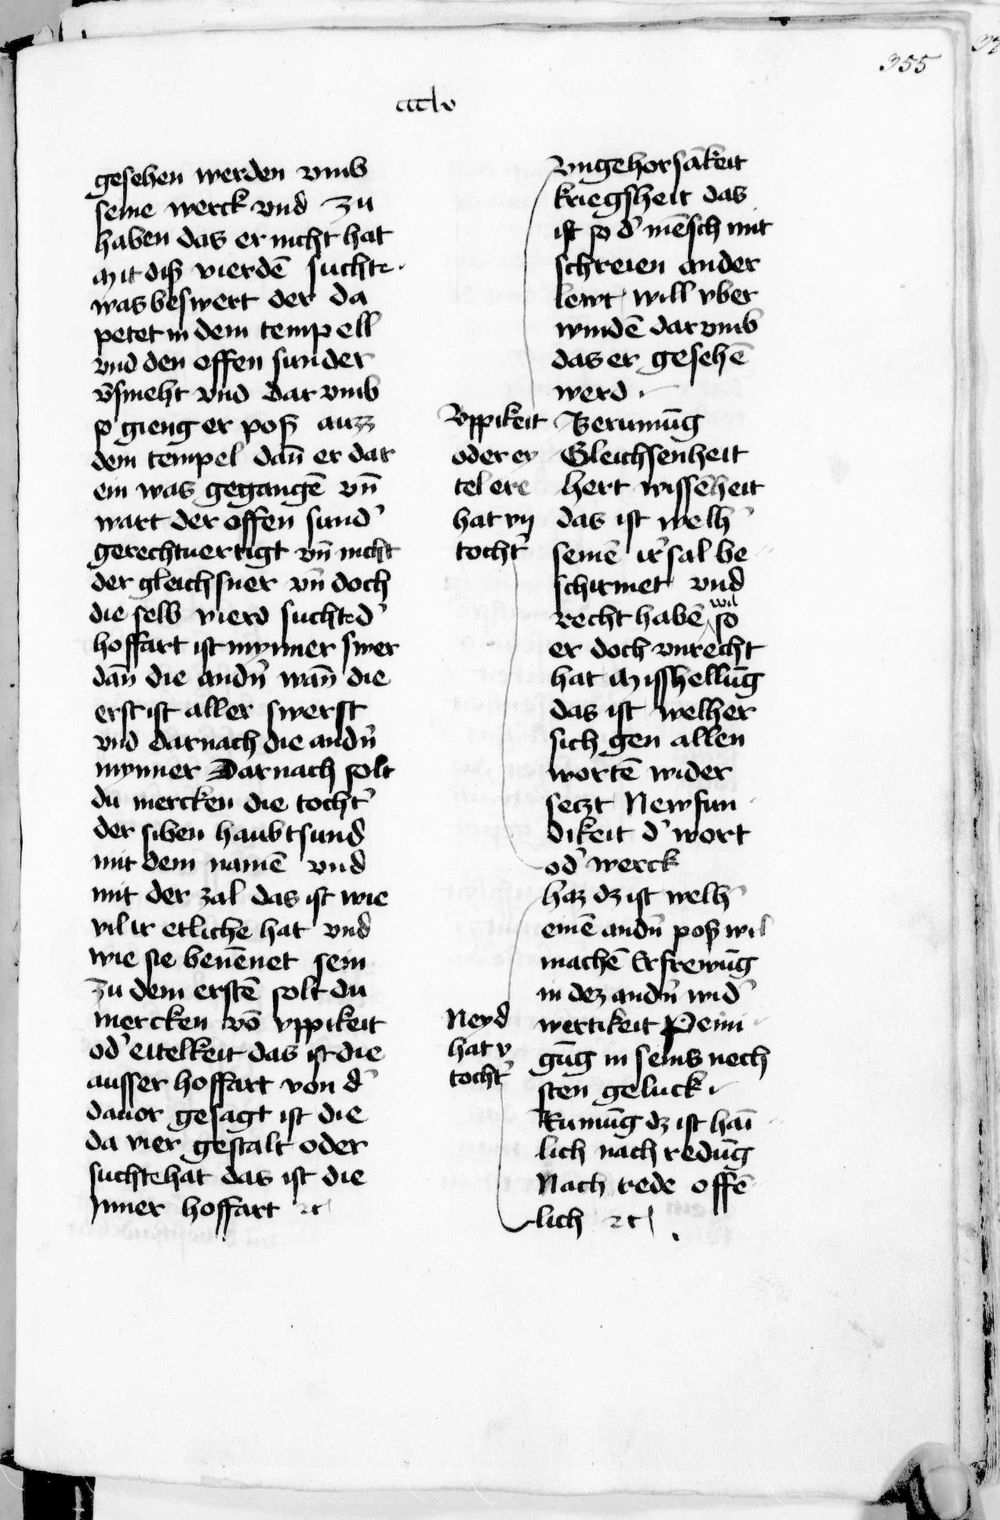 355
ccclv
gesehen werden vmb
seine werck vnd zu
haben das er nicht hat
Mit diß vierdē suchte
was beswert der da
petet in dem tempell
vnd den offen sunder
v̄smeht vnd dar vmb
so gieng er poß auzz
dem tempel dan̄ er dar
ein was gegangē vn̄
wart der offen sund'
gerechtuertigt vn̄ nicht
der gleichsner vn̄ doch
die selb vierd sucht d'
hoffart ist mynner swer
dan̄ die andn̄ wan̄ die
erst ist aller swerst
vnd darnach die andn̄
mynner Darnach solt
du mercken die tocht'
der siben haubtsund
mit dem namē vnd
mit der zal das ist wie
vil ir etliche hat vnd
wie sie benēnet sein
Zu dem erstē solt du
mercken vō vppikeit
od' eitelkeit das ist die
ausser hoffart von d'
dauor gesagt ist die
da vier gestalt oder
suchte hat das ist die
Inner hoffart ⁊c
Vngehorsākeit
kriegsheit das
ist so d' mēsch mit
schreien ander
lewt will vber
windē dar vmb
das er gesehē
werd
Vppikeit
oder ey
tel ere
hat vij
tocht'
Berumūg
Gleichsenheit
hert wissēheit
das ist welh'
seinē ir'sal be
schirmet vnd
recht habē wil so
er doch vnrecht
hat Misshellūg
das ist welher
sich gen allen
wortē wider
seczt Newfun
dikeit d' wort
od' werck
Neyd
hat v
tocht'
haz dz ist welh'
einē andn̄ poß wil
machē Erfrewūg
in dez andn̄ wid'
wertikeit Peini
gūg in seins nech
sten geluck
Runūg dz ist hai
lich nach redūg
Nach rede offē
lich ⁊c